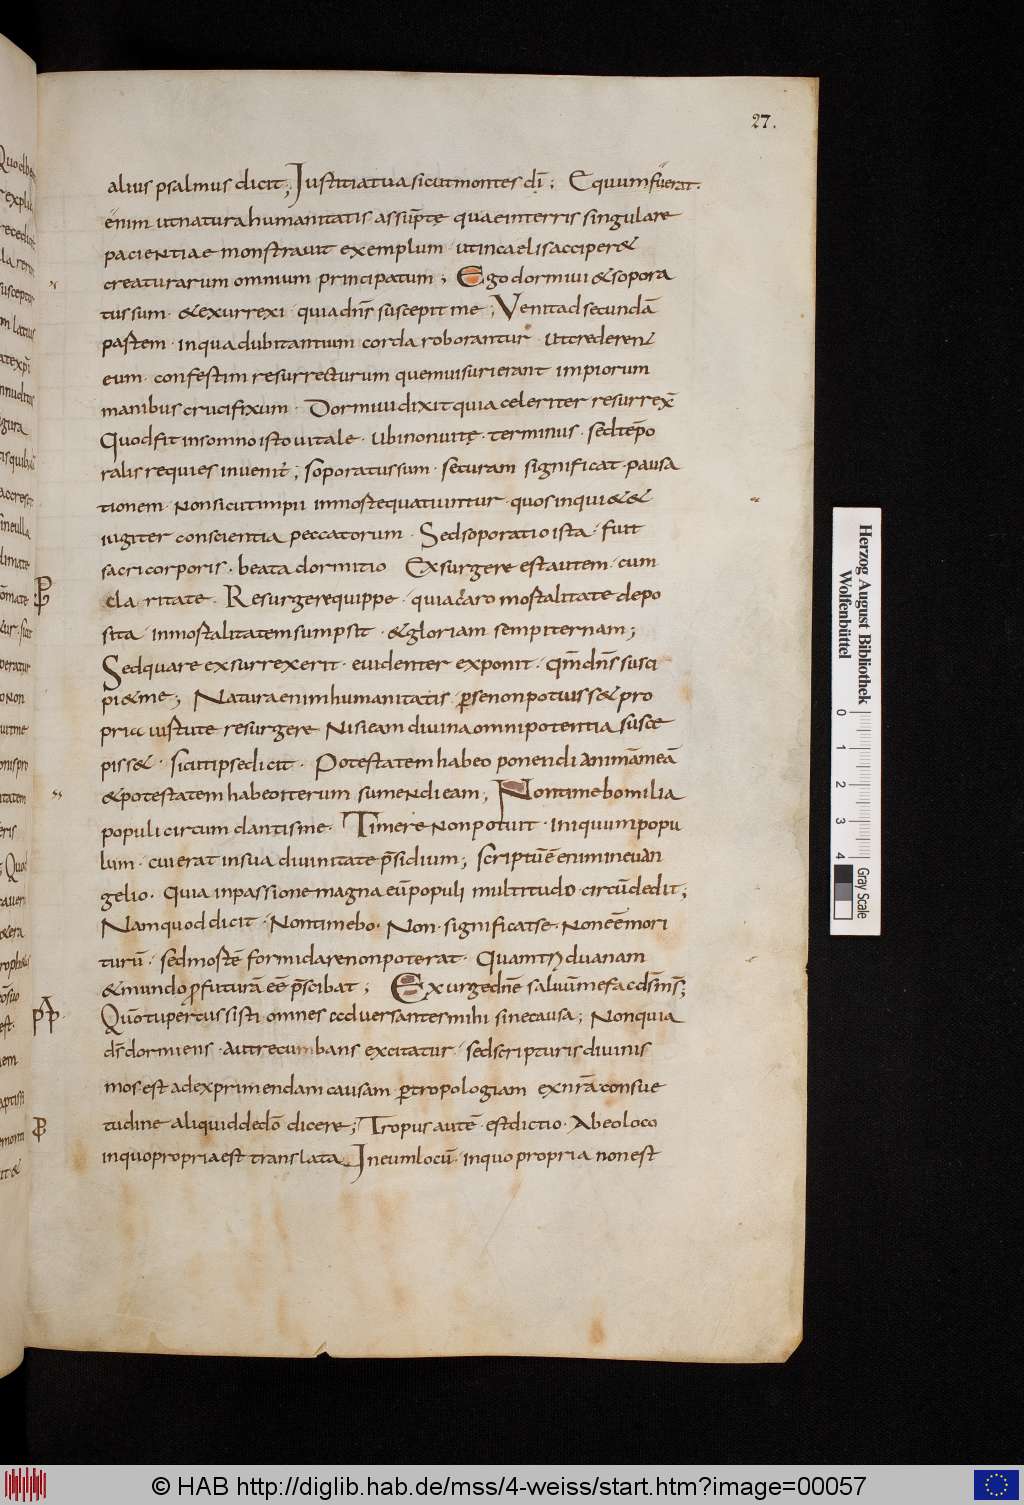 27.
alius psalmus dicit; Iustitia tua sicut montes dī; Equum fuerat.
enim ut natura humanitatis assūpte quae in terris singulare
pacientiae monstravit exemplum · ut in caelis acciper&
creaturarum omnium principatum; Ego dormivi & sopora
tus sum · & exurrexi · quia dn̄s suscepit me; Venit ad secundā
partem · in qua dubitantium corda roborantur · ut crederent
eum · confestim resurrecturum quem viſuri erant impiorum
manibus crucifixum · Dormivi dixit quia celeriter resurrex̄
Quod fit in somno isto vitale · ubi non vitę · terminus · sed tēpo
ralis requies invenit; soporatus sum · securam significat · pausa
tionem · Non sicut impii in morte quatiuntur · quos inqui&&
iugiter conscientia peccatorum · Sed soporatio ista · fuit
sacri corporis · beata dormitio Exsurgere est autem · cum
claritate · Resurgere quippe · quia caro mortalitate depo
sita inmortalitatem sumpsit · & gloriam sempiternam;
Sed quare exsurrexerit · evidenter exponit · qm̄ dn̄s susci
pi& me; Natura enim humanitatis · per se non potuiss& pro
pria virtute resurgere Nisi eam divina omnipotentia susce
piss& · sicut ipse dicit · Potestatem habeo ponendi animā meā
& potestatem habeo iterum sumendi eam; Non timebo milia
populi circumdantis me · Timere non potuit · iniquum popu
lum · cui erat in sua divinitate p̄sidium; scriptū ē enim in evan
gelio · Quia in passione magna eū populi multitudo · circūdedit;
Nam quod dicit · Non timebo · Non · significat se · non eē mori
turū · sed mortē formidare non poterat · Quam tꝫ duanam
& mundo profuturā eē p̄scibat; Exurge dn̄e salvum me fac ds̄ ms̄;
Quō tu percussisti omnes adversantes mihi sine causa; Non quia
ds̄ dormiens · aut recumbans excitatur · sed scripturis divinis
mos est ad exprimendam causam · per tropologiam ex nr̄a consue
tudine aliquid de dō dicere; Tropus autē · est dictio · Ab eo loco
in quo propria est translata In eum locū · in quo propria non est
Herzog August Bibliothek
Wolfenbüttel
0 1 2 3 4
Gray Scale
© HAB http://diglib.hab.de/mss/4-weiss/start.htm?image=00057